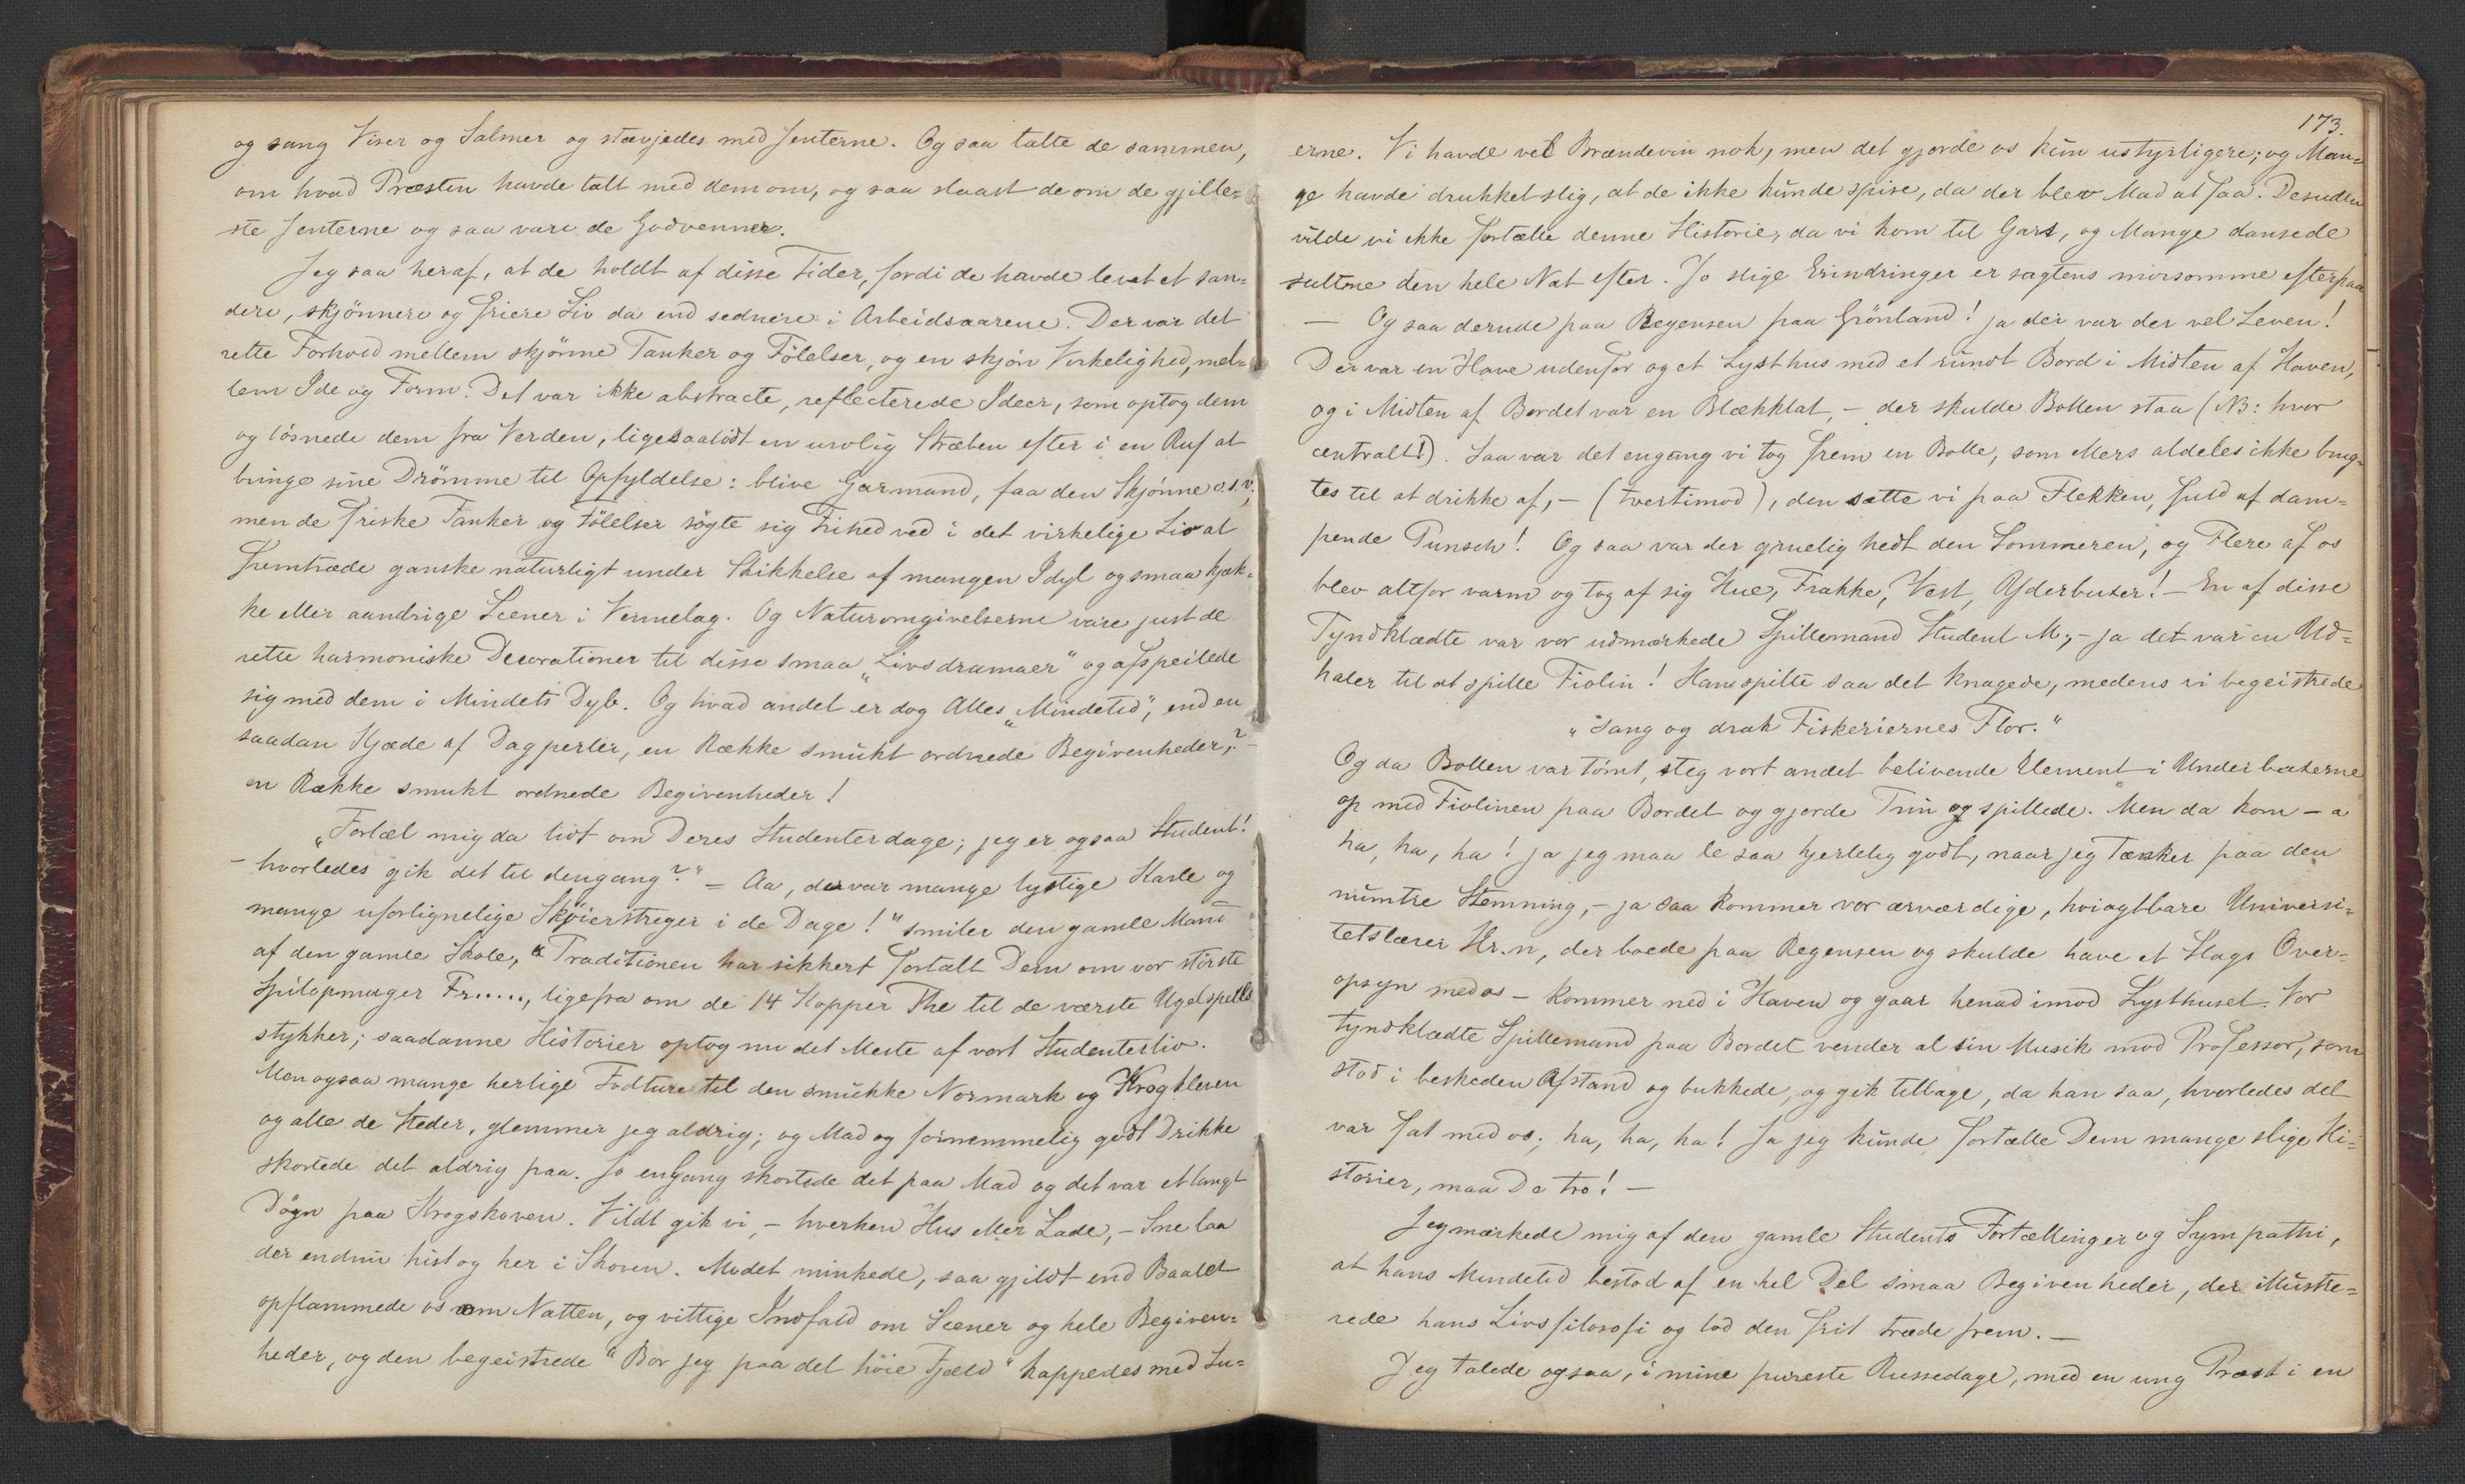 og sang Viser og Salmer og stævjedes med Jenterne. Og saa talte de sammen,
om hvad Præsten havde talt med dem om, og saa slaast de om de gjille-
ste Jenterne og saa vare de Godvenner.
Jeg saa heraf, at de holdt af disse Tider, fordi de havde levet et san-
dere, skjönnere og friere Liv da end sednere i Arbeidsaarene. Der var det
rette Forhold mellem skjönne Tanker og Fölelser, og en skjön Virkelighed, mel-
lem Ide og Form. Det var ikke abstracte, reflecterede Ideer, som optog dem
og lösnede dem fra Verden, ligesaalidt en urolig Stræben efter i en Ruf at
bringe sine Drömme til Opfyldelse: blive Garmand, faa den Skjönne o.s.v;
men de friske Tanker og Fölelser sögte sig Frihed ved i det virkelige Liv at
fremtræde ganske naturligt under Skikkelse af mangen Idyl og smaa kjæk-
ke eller aandrige Scener i Vennelag. Og Naturomgivelserne vare just de
rette harmoniske Decorationer til disse smaa „Livsdramaer" og afspeilede
sig med dem i Mindets Dyb. Og hvad andet er dog Alles „Mindetid", end en
saadan Kjæde af Dagperler, en Række smukt ordnede Begivenheder,? –
en Række smukt ordnede Begivenheder!
„Fortæl mig da lidt om Deres Studenterdage; jeg er ogsaa Student!
– hvorledes gik det til dengang?" – Aa, der var mange lystige Karle og
mange uforlignelige Sköierstreger i de Dage!" smiler den gamle Mand
af den gamle Skole, "Traditionen har sikkert fortalt Dem om vor störste
Spilopmager Fr....., ligefra om de 14 Kopper The til de værste Ugalspells
stykker; saadanne Historier optog nu det Meste af vort Studenterliv.
Men ogsaa mange herlige Fodture til den smukke Normark og Krogkleven
og alle de Steder, glemmer jeg aldrig; og Mad og fornemmelig godt Drikke
skortede det aldrig paa. Jo engang skortede det paa Mad og det var et langt
Dögn paa Krogskoven. Vildt gik vi, – hverken Hus eller Lade, – Sne laa
der endnu hist og her i Skoven. Modet minkede, saa gjildt end Baalet
opflammede os om Natten, og vittige Indfald om Scener og hele Begiven-
heder, og den begeistrede "Bor jeg paa det höie Fjeld" kappedes med Lu-
173.
erne. Vi havde vel Brændevin nok, men det gjorde os kun ustyrligere; og Man-
ge havde drukket slig, at de ikke kunde spise, da der blev Mad at faa. Desuden
vilde vi ikke fortælle denne Historie, da vi kom til Gars, og Mange dansede
sultne den hele Nat efter. Jo slige Erindringer er sagtens morsomme efterpaa
– Og saa derude paa Regensen paa Grönland! ja der var der vel Leven!
Der var en Have udenfor og et Lysthus med et rundt Bord i Midten af Haven,
og i Midten af Bordet var en Blækklat, – der skulde Bollen staa (NB: hvor
centralt!). Saa var det engang vi tog frem en Bolle, som ellers aldeles ikke brug-
tes til at drikke af, – (tvertimod), den satte vi paa Flekken, fuld af dam-
pende Punsch! Og saa var der gruelig hedt den Sommeren, og Flere af os
blev altfor varm og tog af sig Hue, Frakke, Vest, Yderbuxer! – En af disse
Tyndklædte var vor udmærkede Spillemand Student M., – ja det var en Ud-
haler til at spille Fiolin! Han spilte saa det knagede, medens vi begeistrede
„sang og drak Fiskeriernes Flor."
Og da Bollen var tömt, steg vort andet belivende Element i Underbuxerne
op med Fiolinen paa Bordet og gjorde Trin og spillede. Men da kom – a
ha, ha, ha! ja jeg maa le saa hjertelig godt, naar jeg tænker paa den
muntre Stemning, – ja saa kommer vor ærværdige, höiagtbare Universi-
tetslærer Hr. n, der boede paa Regensen og skulde have et Slags Over-
opsyn med os – kommer ned i Haven og gaar henad imod Lysthuset. Vor
tyndklædte Spillemand paa Bordet vender al sin Musik mod Professor, som
stod i beskeden Afstand og bukkede, og gik tilbage, da han saa, hvorledes det
var fat med os; ha, ha, ha! Ja jeg kunde fortælle Dem mange slige Hi-
storier, maa De tro! –
Jeg mærkede mig af den gamle Students Fortællinger og Sympathi,
at hans Mindetid bestod af en hel Del smaa Begivenheder, der illustre-
rede hans Livsfilosofi og lod den frit træde frem. –
Jeg talede ogsaa, i mine pureste Russedage, med en ung Præst i en